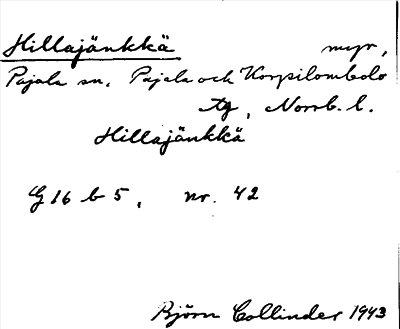 Hillajänkkä myr,
Pajala sn, Pajala och Korpilombolo
tg, Norrb. l.
Hillajänkkä
G 16 b 5, nr. 42
Björn Collinder 1943